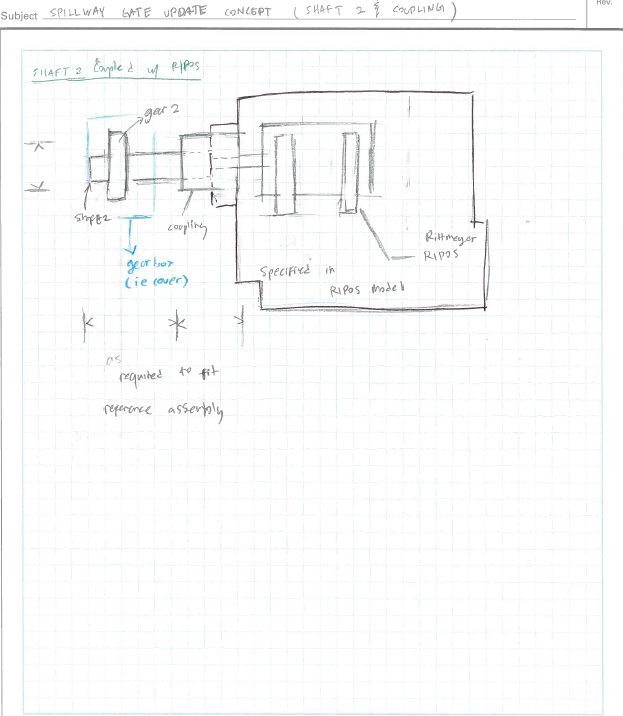 Rev.
Subject SPILLWAY GATE UPDATE CONCEPT ( SHAFT 2 & COUPLING )
SHAFT 2 Coupled w/ RIPOS
gear 2
coupling
gearbox
(ie cover)
Rittmeyer
RIPOS
Specified in
RIPOS Model
as
required to fit
reference assembly